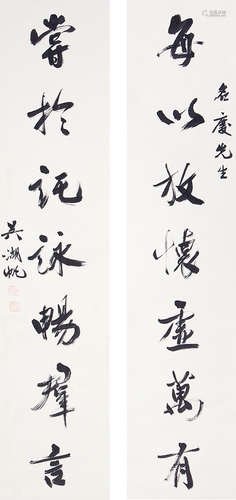 每以放懷虛萬有
名慶先生
嘗於託詠暢群言
吳湖帆